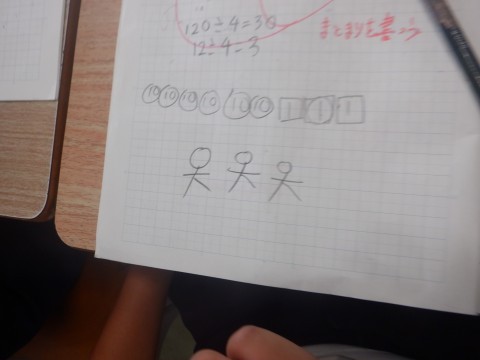 120÷4=30
12÷4=3
まとまりを書こう
10 10 10 10 10 10 1 1 1